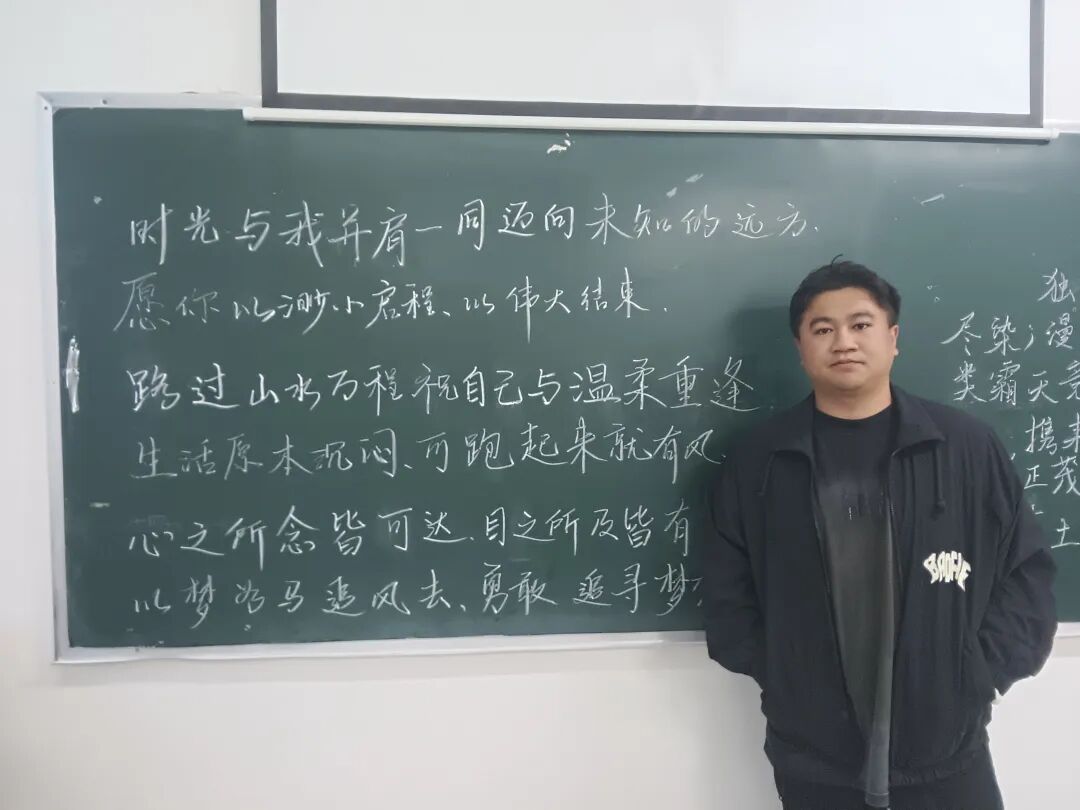 时光与我并肩一同迈向未知的远方.
愿你以渺小启程、以伟大结束.
路过山水万程祝自己与温柔重逢
生活原本沉闷、可跑起来就有风.
心之所念皆可达、目之所及皆有
以梦为马追风去、勇敢追寻梦
独
尽染;漫
类霸天竞
携来
正茂
土